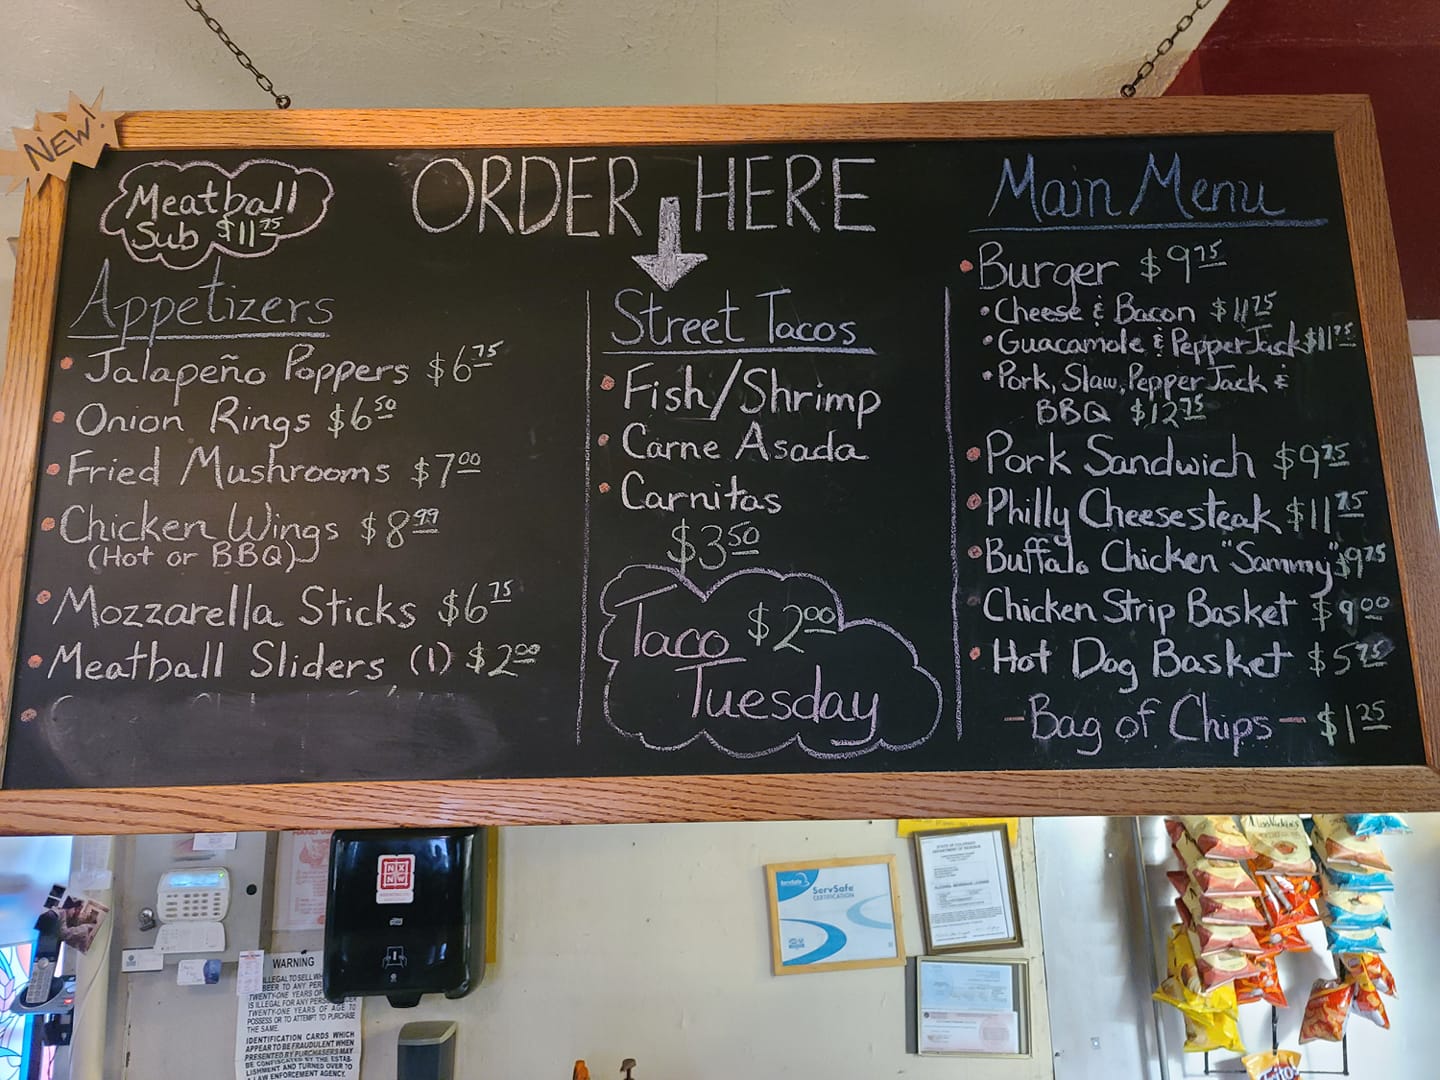 NEW!
Meatball
Sub $11.75
ORDER HERE
Appetizers
• Jalapeño Poppers $6.75
• Onion Rings $6.50
• Fried Mushrooms $7.00
• Chicken Wings $8.99
(Hot or BBQ)
• Mozzarella Sticks $6.75
• Meatball Sliders (1) $2.00
Street Tacos
• Fish/Shrimp
• Carne Asada
• Carnitas
$3.50
Taco $2.00
Tuesday
Main Menu
• Burger $9.75
• Cheese & Bacon $11.75
• Guacamole & Pepper Jack $11.75
• Pork, Slaw, Pepper Jack &
BBQ $12.75
• Pork Sandwich $9.75
• Philly Cheesesteak $11.75
• Buffalo Chicken "Sammy" $9.75
Chicken Strip Basket $9.00
• Hot Dog Basket $5.75
- Bag of Chips - $1.25
WARNING
ILLEGAL TO SELL
BEER TO ANY
TWENTY-ONE YEARS OF
IS ILLEGAL FOR ANY
TWENTY-ONE YEARS OF AGE TO
POSSESS OR TO ATTEMPT TO PURCHASE
THE SAME.
IDENTIFICATION CARDS WHICH
APPEAR TO BE FRAUDULENT WHEN
PRESENTED BY PURCHASERS MAY
BE CONFISCATED BY THE ESTAB-
LISHMENT AND TURNED OVER TO
A LAW ENFORCEMENT AGENCY.
ServSafe
ServSafe
CERTIFICATION
STATE OF COLORADO
DEPARTMENT OF REVENUE
Miss Vickie's